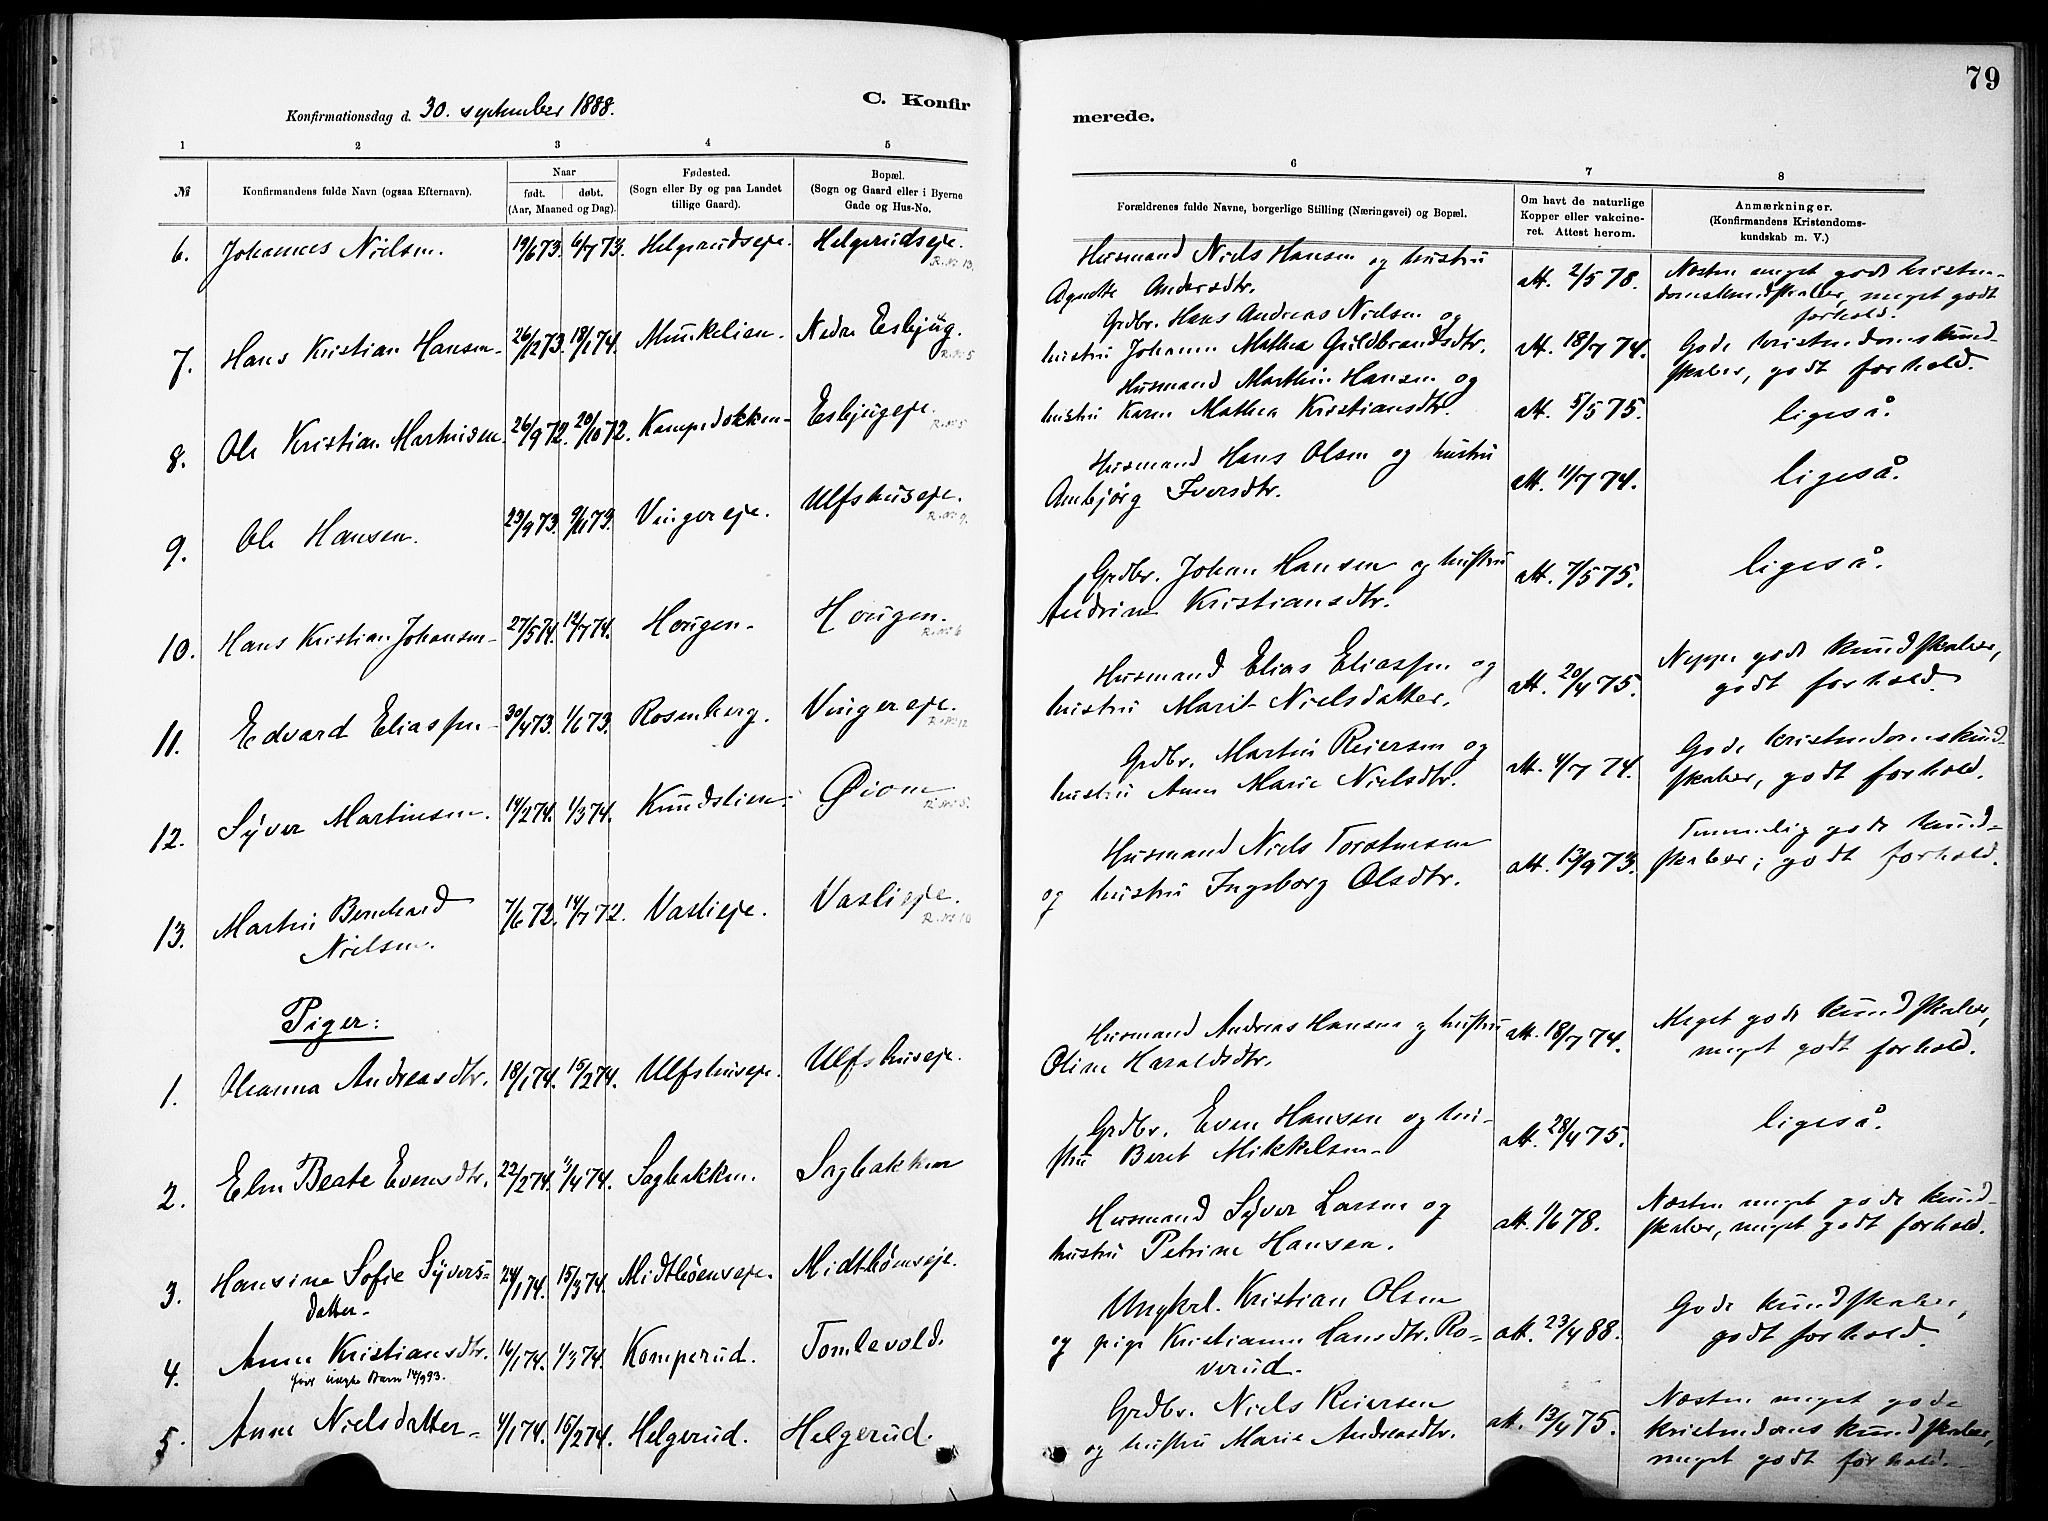 79
Konfirmationsdag d. 30. september 1888.
C. Konfirmerede.
1 2 3 4 5 6 7 8
№ Konfirmandens fulde Navn (ogsaa Efternavn). Naar født. døbt. (Aar, Maaned og Dag). Fødested. (Sogn eller By og paa Landet tillige Gaard). Bopæl. (Sogn og Gaard eller i Byerne Gade og Hus-No. Forældrenes fulde Navne, borgerlige Stilling (Næringsvei) og Bopæl. Om havt de naturlige Kopper eller vakcineret. Attest herom. Anmærkninger. (Konfirmandens Kristendomskundskab m. V.)
6. Johannes Nielsen. 19/6 73. 6/7 73. Helgerudseje. Helgerudseje. R. № 13. Husmand Niels Hansen og hustru
Agnethe Andersdtr. att. 2/5 78. Næsten meget gode kristendomskundskaber, meget godt forhold.
7. Hans Kristian Hansen. 26/12 73. 18/1 74. Munkelien. Nedre Esbjug. R. № 5 Grdbr. Hans Andreas Nielsen og
hustru Johanne Mathea Guldbrandsdtr. att. 18/7 74. Gode kristendomskundskaber, godt forhold.
8. Ole Kristian Martinsen. 26/9 72. 20/10 72. Kampedokken. Esbjugeje. R. № 5 Husmand Marthin Hansen og
hustru Karen Mathea Kristiansdtr. att. 5/5 75. ligeså.
9. Ole Hansen. 23/9 73. 9/11 73. Vingereje. Ulfshuseje. R. № 9. Husmand Hans Olsen og hustru
Anbjørg Iversdtr. att. 11/7 74. ligeså.
10. Hans Kristian Johansen. 27/5 74. 12/7 74. Hougen. Hougen. R. № 6 Grdbr. Johan Hansen og hustru
Andrine Kristiansdtr. att. 7/5 75. ligeså.
11. Edvard Eliassen 30/4 73. 1/6 73. Rosenberg. Vingereje. R. № 12 Husmand Elias Eliassen og
hustru Marit Nielsdatter. att. 20/4 75. Neppe gode kundskaber, godt forhold.
12. Syver Martinsen. 14/2 74. 1/3 74. Knudslien. Øiom Grdbr. Martin Reiersen og
hustru Anne Marie Nielsdtr. att. 4/7 74. Gode kristendomskundskaber, godt forhold.
13. Martin Bernhard
Nielsen. 7/6 72. 14/7 72. Vaslieje. Vaslieje. R. № 10 Husmand Niels Torstensen
og hustru Ingeborg Olsdtr. att. 13/9 73. Temmelig gode kundskaber; godt forhold.
Piger:
1. Oleanna Andreasdtr. 18/1 74. 15/2 74. Ulfshuseje. Ulfshuseje. Husmand Andreas Hansen og hustru
Oline Haraldsdtr. att. 18/7 74. Meget gode kundskaber, meget godt forhold.
2. Elen Beate Evensdtr. 22/2 74. 3/4 74. Sagbakken. Sagbakken Grdbr. Even Hansen og hustru Beret Mikkelsen. att. 28/4 75. ligeså.
3. Hansine Sofie Syversdatter. 24/1 74. 15/3 74. Midthøenseje. Midthønseje. Husmand Syver Larsen og
hustru Petrine Hansen. att. 1/6 78. Næsten meget gode kundskaber, meget godt forhold.
4. Anne Kristiansdtr. 16/1 74. 1/3 74. Komperud. Tomlevold. Ungkrl. Kristian Olsen
og pige Kristianne Hansdtr. Roverud. att. 23/4 88. Gode kundskaber, godt forhold.
Barn 14/9 93.
5. Anne Nielsdatter. 4/1 74. 15/2 74. Helgerud. Helgerud. Grdbr. Niels Reiersen
og hustru Marie Andreasdtr. att. 13/4 75. Næsten meget gode
kristendomskundskaber,
meget godt forhold.